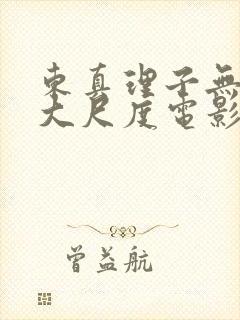 東真理子無
大尺度電影
曾益航